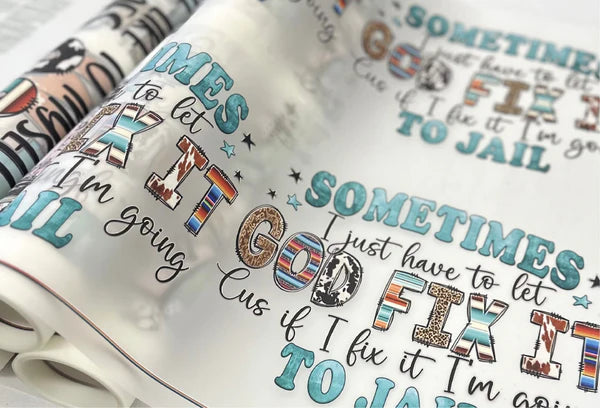 SOMETIMES
I just have to let
GOD FIX I
Cus if I fix it I'm going
TO JAIL
IMES
to let
FIX IT
I'm going
JAIL
going
SOMETIMES
I just have to let
GOD FIX IT
Cus if I fix it I'm going
TO JA